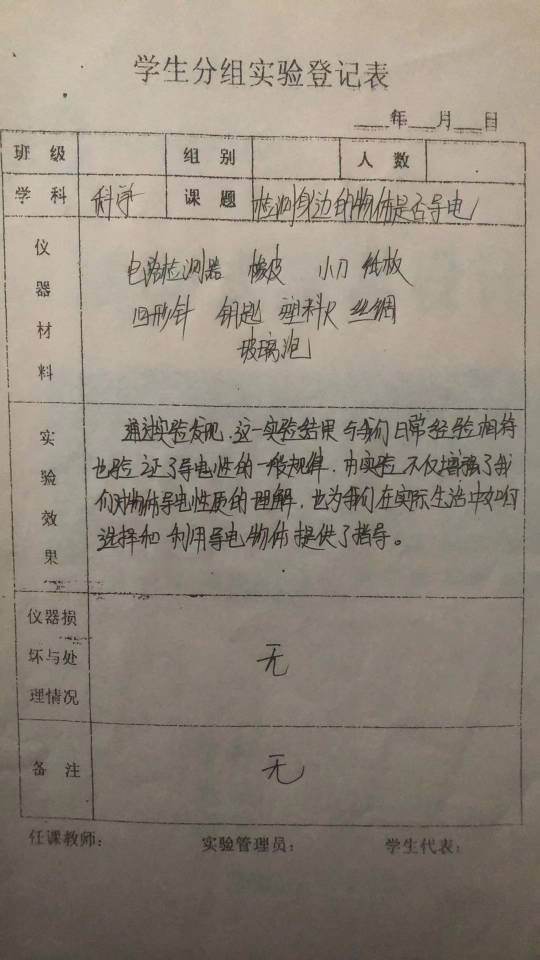 学生分组实验登记表
年 月 日
班级 组别 人数
学科 科学 课题 检测身边的物体是否导电
仪器材料
电路检测器 橡皮 小刀 纸板
回形针 钥匙 塑料尺 丝绸
玻璃泡
实验效果
通过实验发现,这一实验结果与我们日常经验相符
也验证了导电性的一般规律,由实验不仅增强了我
们对物体导电性质的理解,也为我们在实际生活中如何
选择和利用导电物体提供了指导。
仪器损
坏与处 无
理情况
备注 无
任课教师: 实验管理员: 学生代表: